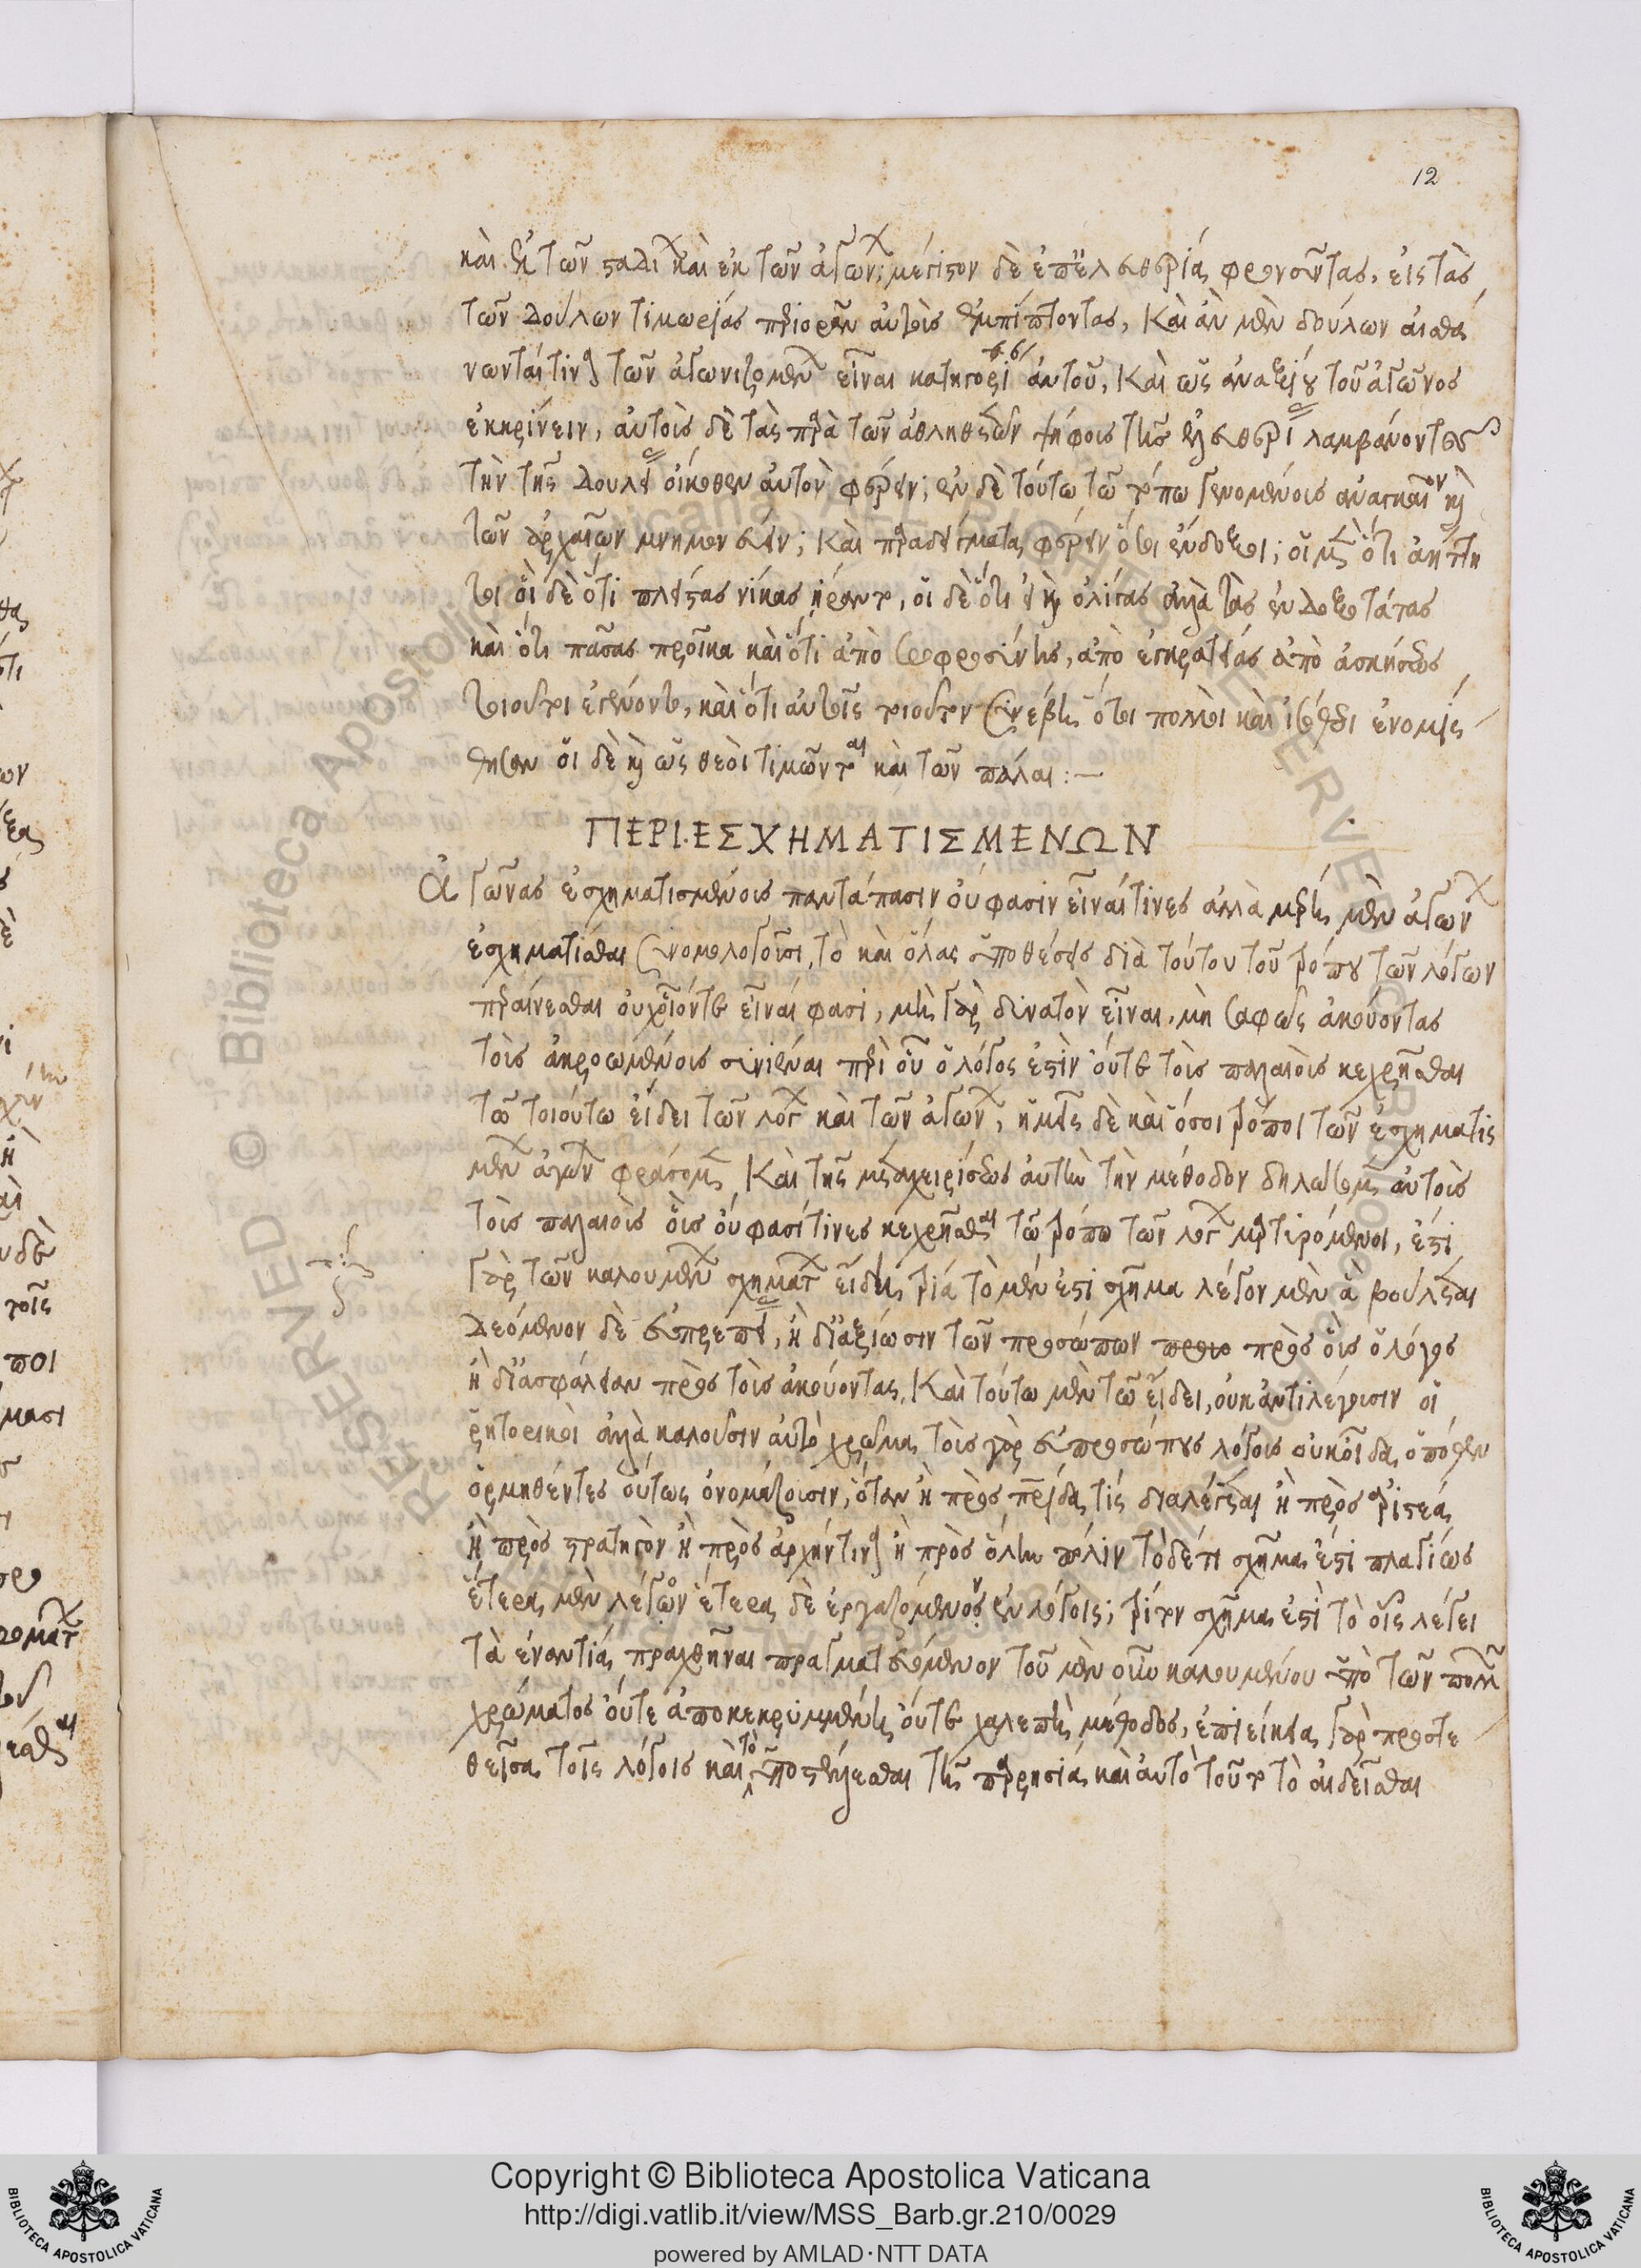 12
καὶ ἐκ τῶν σταδί καὶ ἐκ τῶν ἀγών; μέγιστον δὲ ἐπ' ἐλευθερία φρονοῦντας, εἰς τὰς
τῶν δούλων τιμωρίας περιορᾶν αὐτοὺς ἐμπίπτοντας, Καὶ ἂν μὲν δοῦλον αἰσθά
νωνταί τινα τῶν ἀγωνιζομένων εἶναι κατηγορεῖ αὐτοῦ, Καὶ ὡς ἀναξίου τοῦ ἀγῶνος
ἐκκρίνειν, αὐτοὺς δὲ τὰς παρὰ τῶν ἀθλοθετῶν ψήφους τῆς ἐλευθερί λαμβάνοντες
τὴν τῆς δουλεί οἴκοθεν αὐτὸν φέρειν; ἐν δὲ τούτω τῶ τόπω γενομένοις ἀναγκαῖον καὶ
τῶν ἀρχαίων μνημονεύειν; Καὶ παραδείγματα φέρειν ὅσοι ἔνδοξοι; οἱ μὲν ὅτι ἀήττη
τοι οἱ δὲ ὅτι πλείστας νίκας ἤραντο, οἱ δὲ ὅτι εἰ καὶ ὀλίγας ἀλλὰ τὰς ἐνδοξοτάτας
καὶ ὅτι πάσας προῖκα καὶ ὅτι ἀπὸ σωφροσύνης, ἀπὸ ἐγκρατείας ἀπὸ ἀσκήσεως
τοιοῦτοι ἐγένοντο, καὶ ὅτι αὐτοῖς τοιοῦτον συνέβη ὅσοι πολλοὶ καὶ ἰσόθεοι ἐνομίσ
θησαν οἱ δὲ καὶ ὡς θεοὶ τιμῶνται καὶ τῶν πάλαι :—
ΠΕΡΙ. ΕΣΧΗΜΑΤΙΣΜΕΝΩΝ
Ἀγῶνας ἐσχηματισμένους παντάπασιν οὔ φασιν εἶναί τινες ἀλλὰ μέρη μὲν ἀγών
ἐσχηματίσθαι συνομολογοῦσι, τὸ καὶ ὅλας ὑποθέσεις διὰ τούτου τοῦ τρόπου τῶν λόγων
περαίνεσθαι οὐχ οἷόντε εἶναί φασι, μὴ γὰρ δυνατὸν εἶναι, μὴ σαφῶς ἀκούοντας
τοὺς ἀκροωμένους συνιέναι περὶ οὗ ὁ λόγος ἐστὶν οὔτε τοὺς παλαιοὺς κεχρῆσθαι
τῶ τοιούτω εἴδει τῶν λόγ καὶ τῶν ἀγών, ἡμεῖς δὲ καὶ ὅσοι τρόποι τῶν ἐσχηματισ
μέν ἀγών φράσομεν Καὶ τῆς μεταχειρίσεως αὐτὴν τὴν μέθοδον δηλώσομεν αὐτοὺς
τοὺς παλαιοὺς οὓς οὔ φασί τινες κεχρῆσθαι τῶ τρόπω τῶν λόγ μαρτυρόμενοι, ἔστι
γὰρ τῶν καλουμέν σχημάτ εἴδη τρία τὸ μέν ἐστι σχῆμα λέγον μὲν ἃ βούλεται
δεόμενον δὲ εὐπρεπεί, ἢ δι' ἀξίωσιν τῶν προσώπων προσω πρὸς οὓς ὁ λόγος
ἢ δι' ἀσφάλειαν πρὸς τοὺς ἀκούοντας, Καὶ τούτω μὲν τῶ εἴδει, οὐκ ἀντιλέγουσιν οἱ
ῥητορικοὶ ἀλλὰ καλοῦσιν αὐτὸ χρῶμα τοὺς γὰρ εὐπροσώπους λόγους οὐκ οἶδα ὁπόθεν
ὁρμηθέντες οὕτως ὀνομάζουσιν, ὅταν ἢ πρὸς πατρίδα τίς διαλέγεται ἢ πρὸς ἀριστέα
ἢ πρὸς στρατηγὸν ἢ πρὸς ἄρχοντινα ἢ πρὸς ὅλην πόλιν τὸ δέ τι σχῆμα ἐστὶ πλαγίως
ἕτερα μὲν λέγων ἕτερα δὲ ἐργαζόμενος ἐν λόγοις; τρίτον σχῆμα ἐστὶ τὸ οἷς λέγει
τὰ ἐναντία πραχθῆναι πραγματευόμενον τοῦ μὲν οὖν καλουμένου ὑπὸ τῶν πολλῶν
χρώματος οὔτε ἀποκεκρυμμένη οὔτε χαλεπὴ μέθοδος, ἐπιείκεια γὰρ προστε
θεῖσα τοῖς λόγοις καὶ τὸ ὑποστέλλεσθαι τῆς παρρησία καὶ αὐτὸ τοῦτο τὸ αἰδεῖσθαι
RESERVED © Biblioteca Apostolica Vaticana
Copyright © Biblioteca Apostolica Vaticana
http://digi.vatlib.it/view/MSS_Barb.gr.210/0029
powered by AMLAD·NTT DATA
BIBLIOTECA APOSTOLICA VATICANA
BIBLIOTECA APOSTOLICA VATICANA